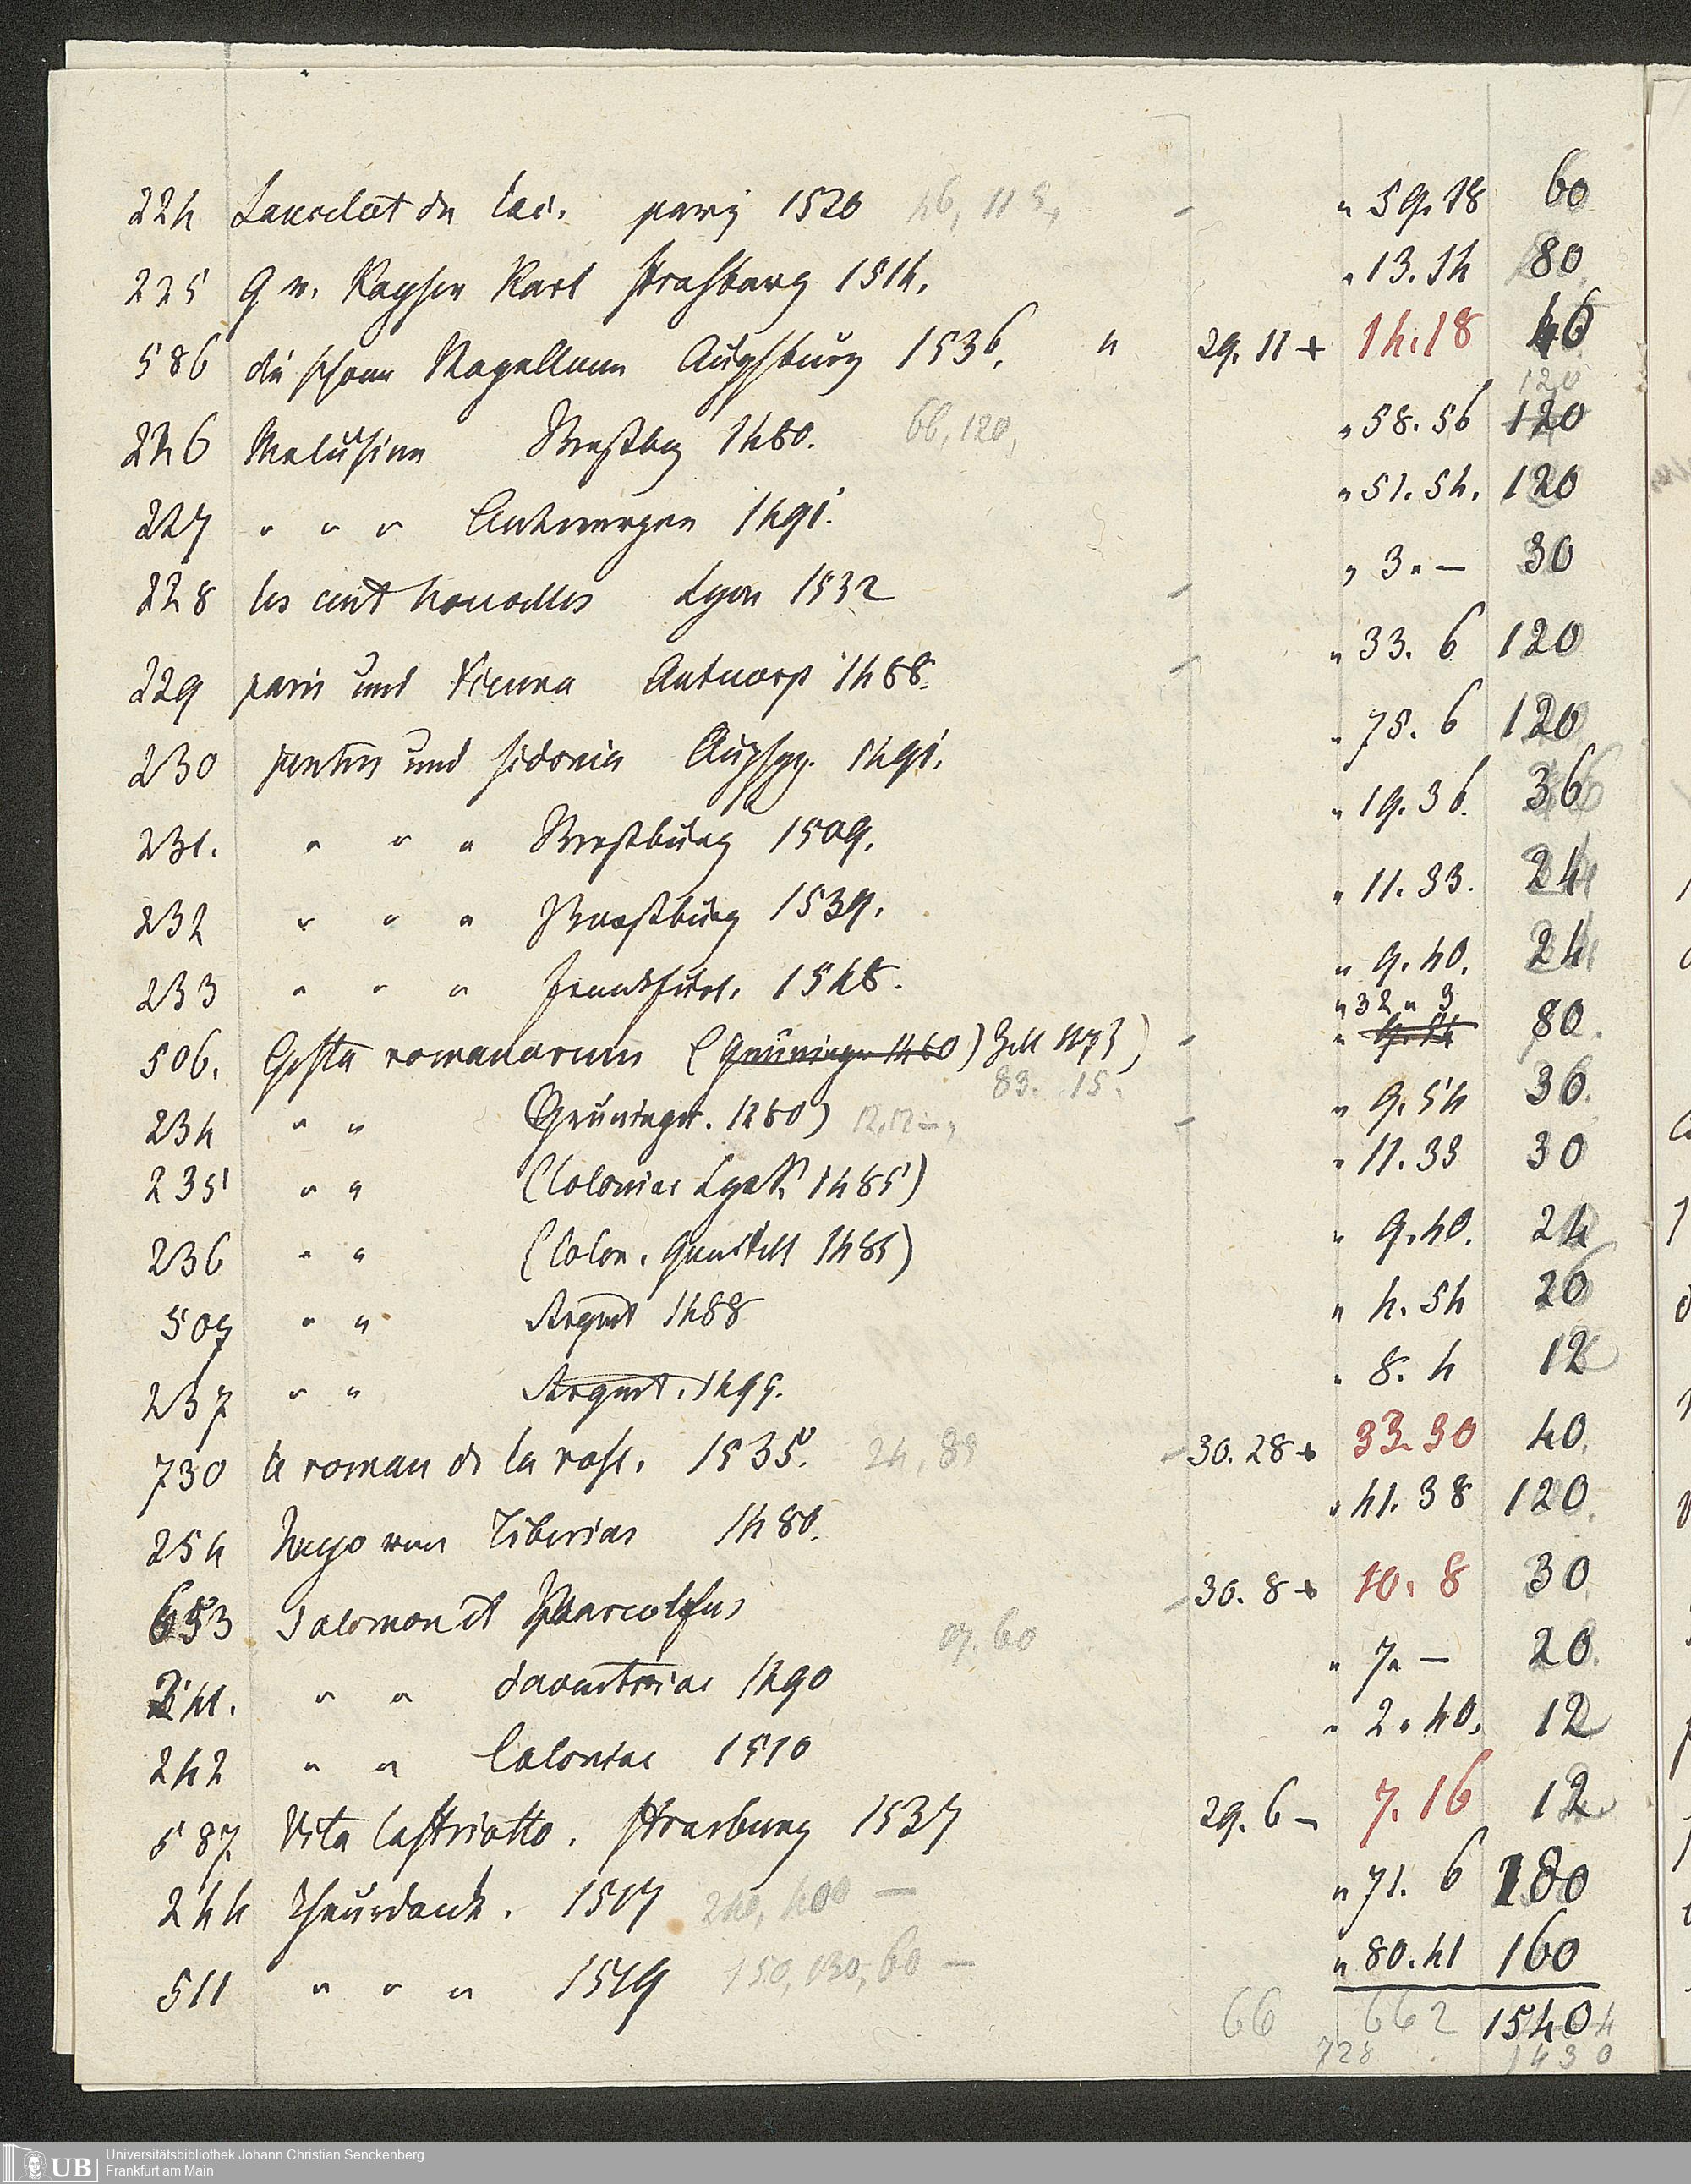 224 Lancelot du Lac. paris 1520 46, 113, „ 59.18 60
225 Q v. Kayser Karl Straßburg 1514. „ 13.54 80
586 die schone Magellone Augsburg 1536. 29.11 + 14.18 46
120
226 Melusine Straßbg 1480. 66, 120, „ 58.56 120
227 „ „ „ Antwerpen 1491. „ 51.54. 120
228 les cent nouvelles Lyon 1532 „ 3 „ — 30
229 paris und Vienna Antwerp 1488. „ 33. 6 120
230 pontus und sidonia Augspg. 1491. „ 75. 6 120
231. „ „ „ Straßburg 1509. „ 19.36. 36
232 „ „ „ Straßburg 1539. „ 11.33. 24
233 „ „ „ Frankfurt. 1548. „ 9.40. 24
506. Gesta romanorum (Grüninger 1480) Zell 1473) „ 32 „ 3 80.
83. 15.
234 „ „ Grüninger. 1480) „ 9.54 36.
235 „ „ (Coloniae 1485) „ 11.33 30
236 „ „ (Colon. Quentell 1485) „ 9.40. 24
507 „ „ Argent 1488 „ 4.54 20
237 „ „ Argent. 1499. „ 8. 4 12
730 le roman de la rose. 1535. 24, 89 30.28 + 33.30 40.
254 Hugo von Tiberias 1480. „ 41.38 120.
653 Salomon et Marcolfus 30. 8 + 10. 8 30
07. 60
241. „ „ daventriae 1490 „ 7 „ — 20.
242 „ „ Coloniae 1510 „ 2 „ 40. 12
587. Vita Castriotto. Strasburg 1537 29. 6 — 7.16 12
244 Theurdank. 1517 240, 400 — „ 71. 6 180
511 „ „ „ 1519 150, 130, 60 — „ 80.41 160
66 662 1540 4
728 1430
UB Universitätsbibliothek Johann Christian Senckenberg
Frankfurt am Main